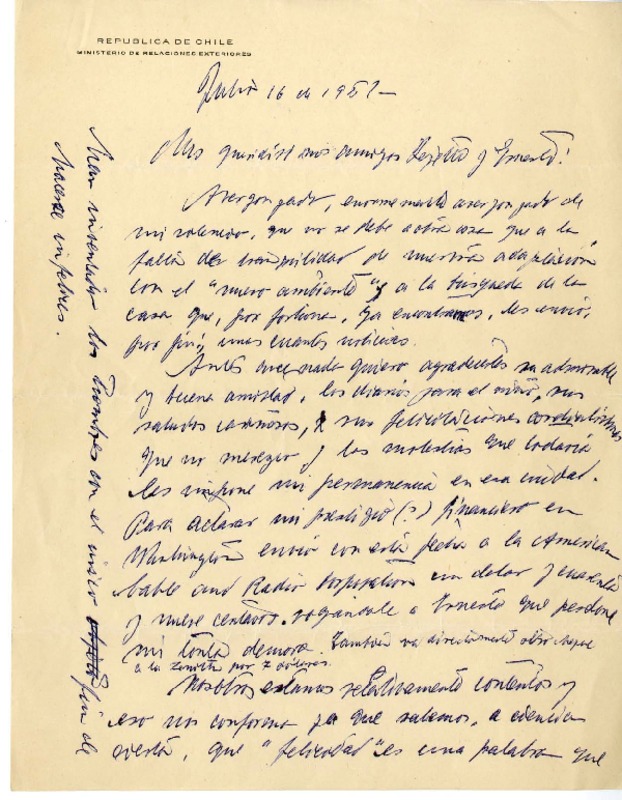 REPUBLICA DE CHILE
MINISTERIO DE RELACIONES EXTERIORES
Julio 16 de 195
Mis queridísimos amigos y Ernesto!
Avergonzado, enormemente avergonzado de
mi silencio, que no se debe a otra cosa que a la
falta de tranquilidad de nuestra adaptación
con el "nuevo ambiente" y a la búsqueda de la
casa que, por fortuna, ya encontramos, les envío,
por fin, unas cuantas noticias.
Antes que nada quiero agradecerles su admirable
y buena amistad, los diarios para el niño, sus
saludos cariñosos, sus felicitaciones cordialísimas
que no merezco y las molestias que todavía
les impone mi permanencia en esa ciudad.
Para aclarar mi prestigio (?) financiero en
Washington envío con esta fecha a la American
Cable and Radio Corporation un dolar y cuarenta
y nueve centavos, rogándole a Ernesto que perdone
mi tonta demora. También va directamente otro cheque
a la Zenith por 7 dólares.
Nosotros estamos relativamente contentos y
eso nos conforma ya que sabemos, a ciencia
cierta, que "felicidad" es una palabra que
han inventado los hombres con el único fin de
hacerse infelices.